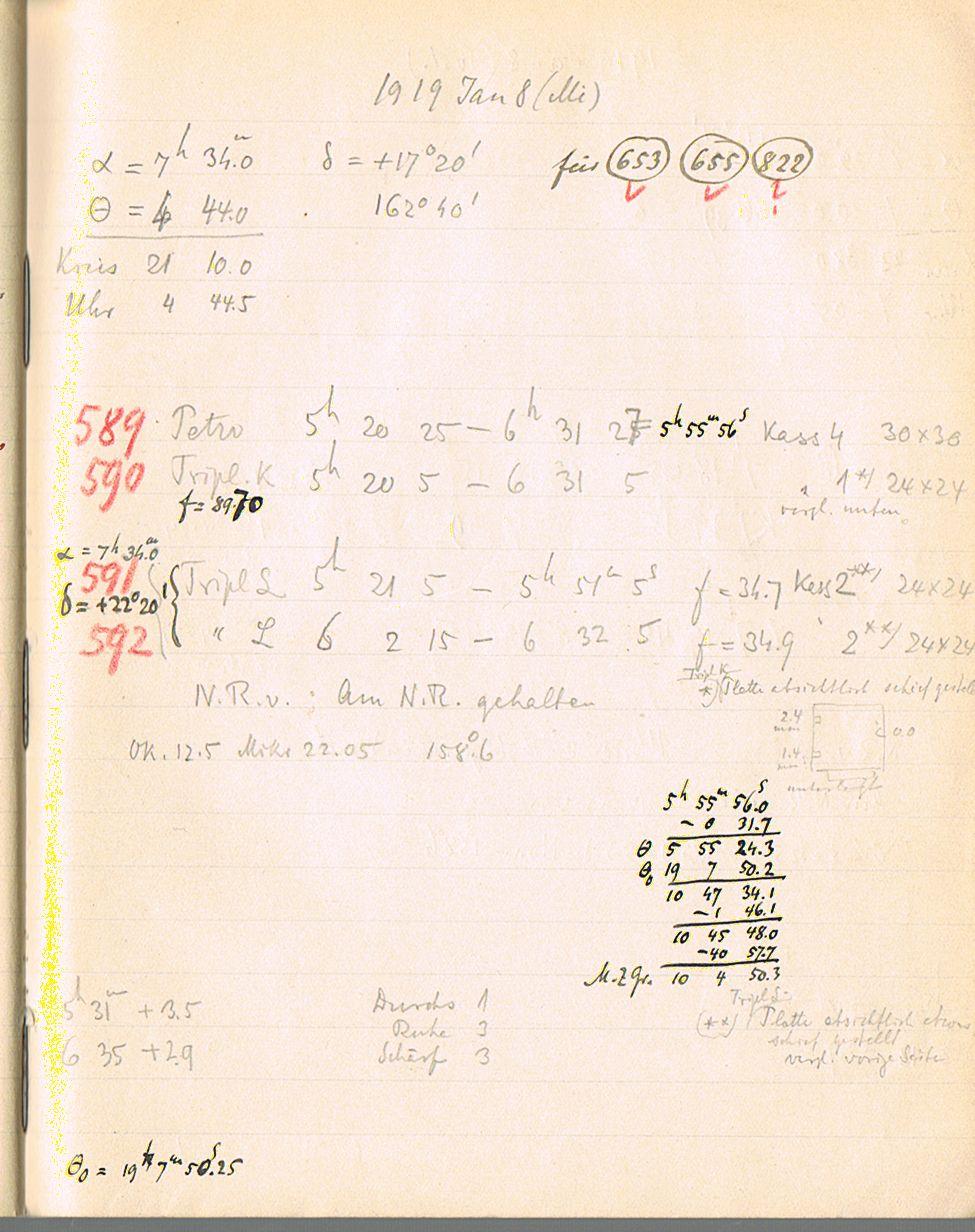 1919 Jan 8 (Mi)
α = 7h 34.0m δ = +17°20' für 653 655 822
Θ = 4 44.0 162°40'
Kreis 21 10.0
Uhr 4 44.5
589 Petro 5h 20 25 – 6h 31 27 = 5h 55m 56s Kass 4 30×30
590 Tripl. K 5h 20 5 – 6 31 5 1*) 24×24
f = 89.70 vergl. unten
α = 7h 34.0m
591 Tripl L 5h 21 5 – 5h 51m 5s f = 34.7 Kass 2**) 24×24
δ = +22°20'
592 " L 6 2 15 – 6 32 5 f = 34.9 2**) 24×24
Tripl K
N.R.v.: Am N.R. gehalten *) Platte absichtlich schief gestellt
2.4 mm 0.0
Ok. 12.5 Mikr 22.05 158°.6 1.4 mm
unterlegt
5h 55m 56.0s
– 0 31.7
Θ 5 55 24.3
Θ0 19 7 50.2
10 47 34.1
– 1 46.1
10 45 48.0
–40 57.7
M.Z.Gr. 10 4 50.3
Tripl L
5h 31m +3.5 Durchs 1 (**) Platte absichtlich etwas
Ruhe 3 schief gestellt
6 35 +2.9 Schärf 3 vergl. vorige Seite
Θ0 = 19h 7m 50s.25